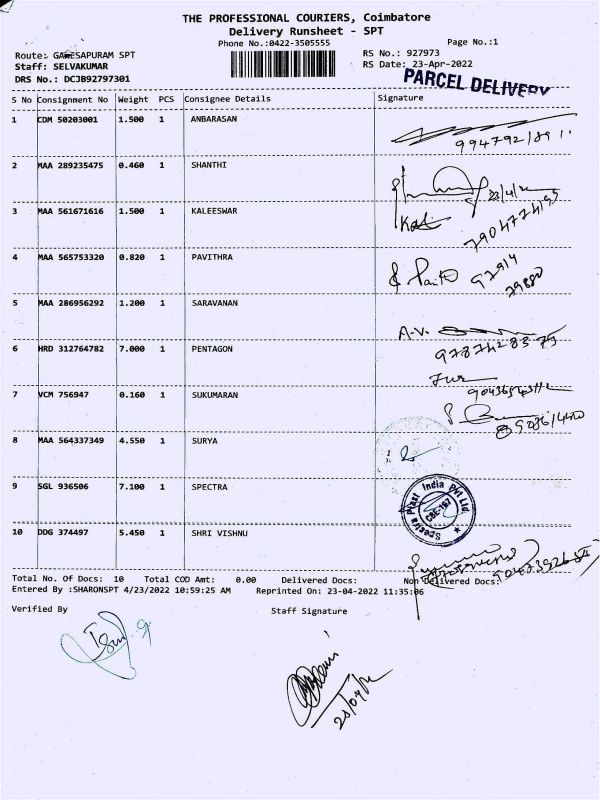 THE PROFESSIONAL COURIERS, Coimbatore
Delivery Runsheet - SPT
Phone No.:0422-3505555 Page No.:1
Route: GANESAPURAM SPT RS No.: 927973
Staff: SELVAKUMAR RS Date: 23-Apr-2022
DRS No.: DCJB92797301
PARCEL DELIVERY
S No Consignment No Weight PCS Consignee Details Signature
1 CDM 50203001 1.500 1 ANBARASAN
2 MAA 289235475 0.460 1 SHANTHI
3 MAA 561671616 1.500 1 KALEESWAR
7904774193
4 MAA 565753320 0.820 1 PAVITHRA
97914
79880
5 MAA 286956292 1.200 1 SARAVANAN
A.V.
6 HRD 312764782 7.000 1 PENTAGON
7 VCM 756947 0.160 1 SUKUMARAN
8 MAA 564337349 4.550 1 SURYA
9 SGL 936506 7.100 1 SPECTRA
Spectra Plast India Pvt Ltd.
10 DDG 374497 5.450 1 SHRI VISHNU
Total No. Of Docs: 10 Total COD Amt: 0.00 Delivered Docs: Non Delivered Docs:
Entered By :SHARONSPT 4/23/2022 10:59:25 AM Reprinted On: 23-04-2022 11:35:06
Verified By Staff Signature